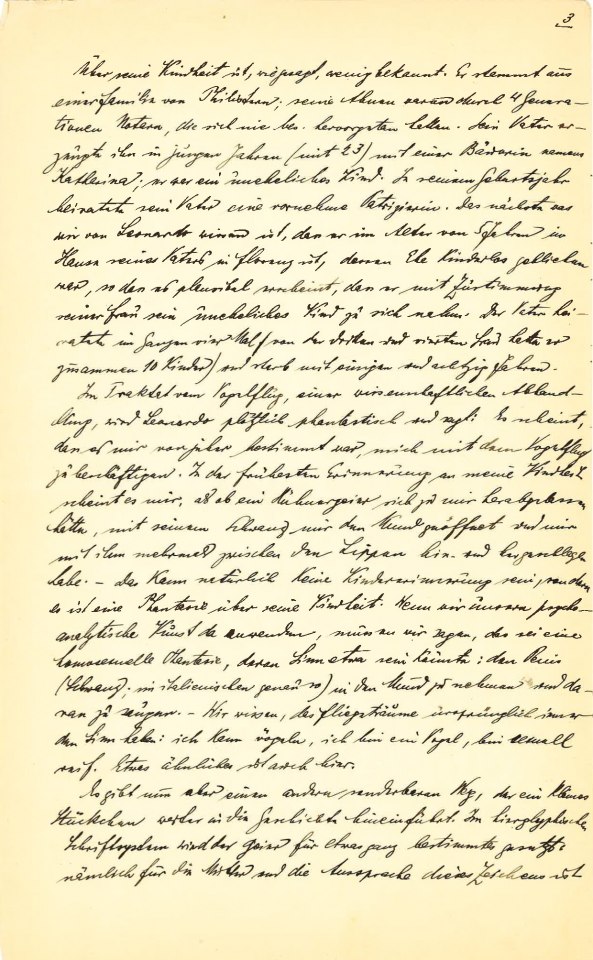 3
Über seine Kindheit ist, wie gesagt, wenig bekannt. Er stammt aus
einer Familie von Philistern; seine Ahnen waren durch 4 Genera-
tionen Notare, die sich nie bes. hervorgetan hatten. Sein Vater er-
zeugte ihn in jungen Jahren (mit 23) mit einer Bäuerin namens
Katherina; er war ein uneheliches Kind. In seinem Geburtsjahr
heiratete sein Vater eine vornehme Patrizierin. Das nächste was
wir von Leonardo wissen ist, dass er im Alter von 5 Jahren im
Hause seines Vaters in Florenz ist, dessen Ehe kinderlos geblieben
war, so dass es plausibel erscheint, dass er mit Zustimmung
seiner Frau sein uneheliches Kind zu sich nahm. Der Vater hei-
ratete im Ganzen vier Mal (von der dritten und vierten Frau hatte er
zusammen 10 Kinder) und starb mit einigen und achtzig Jahren.
Im Traktat vom Vogelflug, einer wissenschaftlichen Abhand-
lung, wird Leonardo plötzlich phantastisch und sagt: Es scheint,
dass es mir von jeher bestimmt war, mich mit dem Vogelflug
zu beschäftigen. In der frühesten Erinnerung an meine Kindheit
scheint es mir, als ob ein Hühnergeier sich zu mir herabgelassen
hätte, mit seinem Schwanz mir den Mund geöffnet und mir
mit ihm mehrmals zwischen den Lippen hin- und hergeschlagen
habe. – Das kann natürlich keine Kindererinnerung sein, sondern
es ist eine Phantasie über seine Kindheit. Wenn wir unsere psycho-
analytische Kunst da anwenden, müssen wir sagen, das sei eine
homosexuelle Phantasie, deren Sinn etwa sein könnte: den Penis
(Schwanz; im italienischen genau so) in den Mund zu nehmen und da-
ran zu saugen. – Wir wissen, dass Fliegeträume ursprünglich immer
den Sinn haben: ich kann vögeln, ich bin ein Vogel, bin sexuell
reif. Etwas ähnliches ist auch hier.
Es gibt nun aber einen andern sonderbaren Weg, der ein kleines
Stückchen weiter in die Geschichte hineinführt. Im hieroglyphischen
Schriftsystem wird der Geier für etwas ganz bestimmtes gesetzt:
nämlich für die Mutter und die Aussprache dieses Zeichens ist